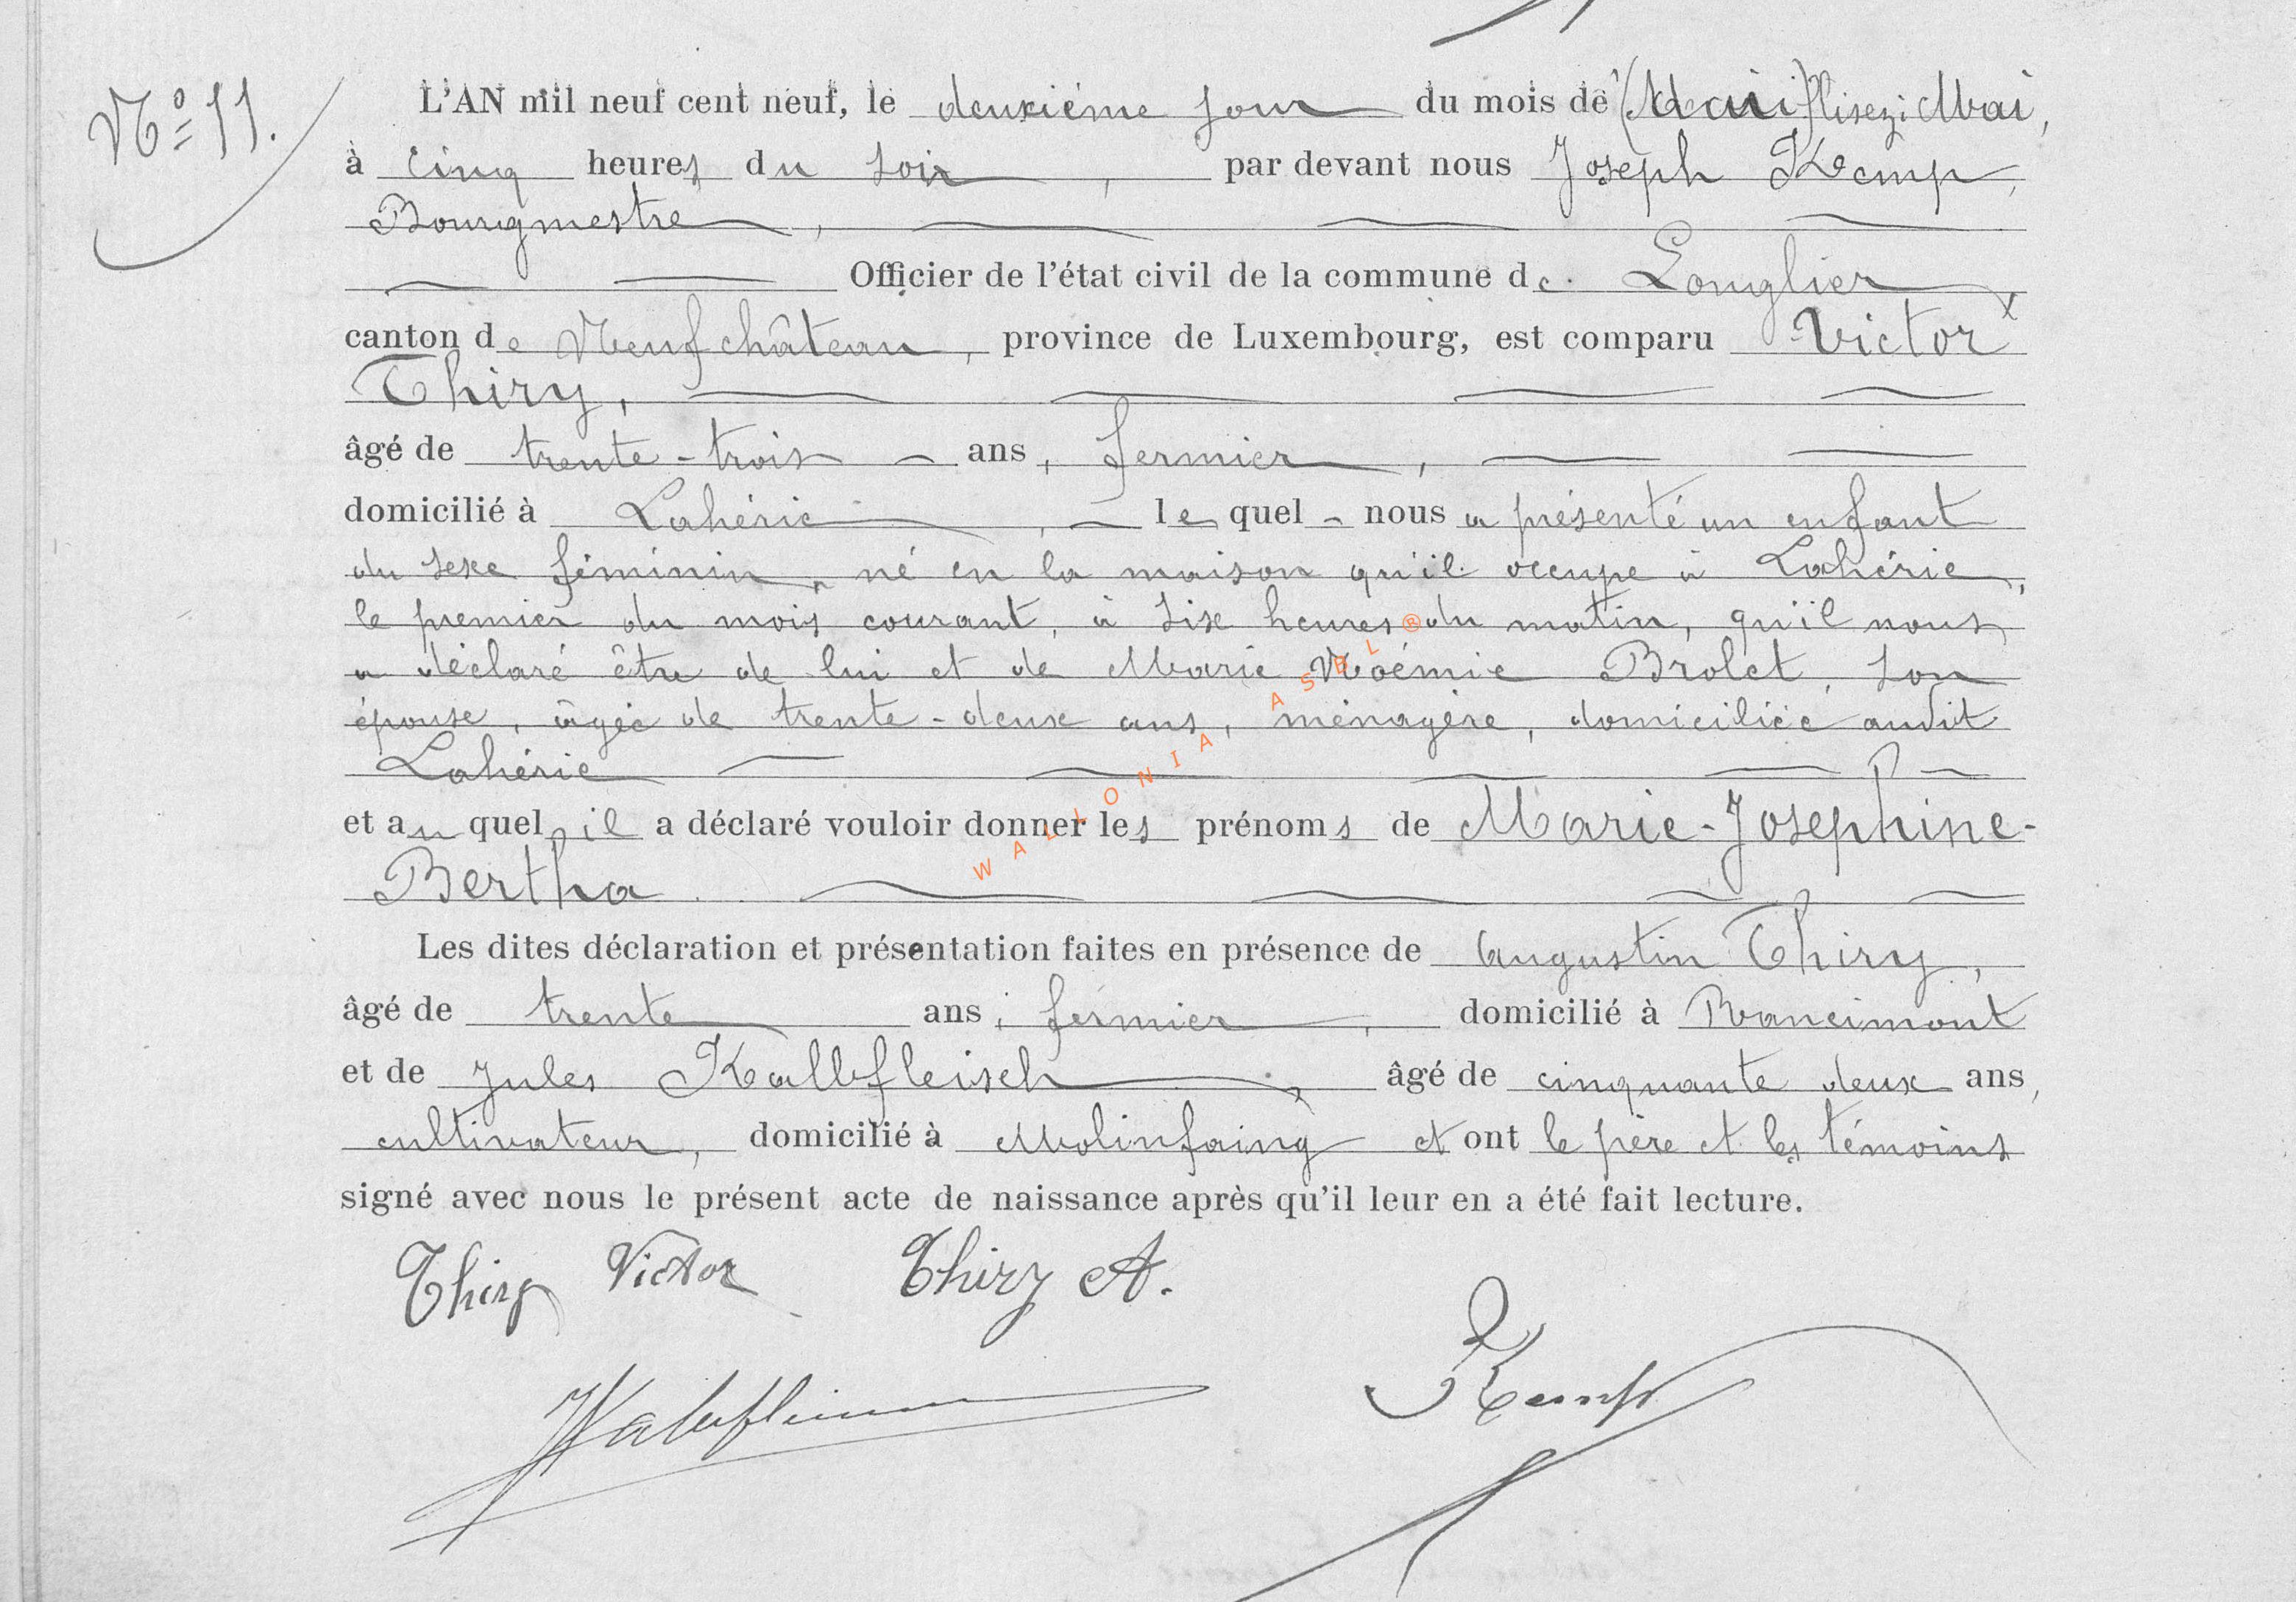 N° 11.
L'AN mil neuf cent neuf, le deuxième jour du mois de (Mai) lisez: Mai,
à cinq heures du soir, par devant nous Joseph Kemp,
Bourgmestre,
Officier de l'état civil de la commune de Longlier,
canton de Neufchâteau, province de Luxembourg, est comparu Victor
Thiry,
âgé de trente-trois ans, fermier,
domicilié à Lahérie, lequel nous a présenté un enfant
du sexe féminin, né en la maison qu'il occupe à Lahérie,
le premier du mois courant, à six heures du matin, qu'il nous
a déclaré être de lui et de Marie Noémie Brolet, son
épouse, âgée de trente-deux ans, ménagère, domiciliée audit
Lahérie
et auquel il a déclaré vouloir donner les prénoms de Marie-Joséphine-
Bertha.
Les dites déclaration et présentation faites en présence de Augustin Thiry,
âgé de trente ans, fermier, domicilié à Rancimont
et de Jules Kalbfleisch, âgé de cinquante deux ans,
cultivateur, domicilié à Molinfaing et ont le père et les témoins
signé avec nous le présent acte de naissance après qu'il leur en a été fait lecture.
Thiry Victor Thiry A.
Kemp
WALLONIA ASBL ®